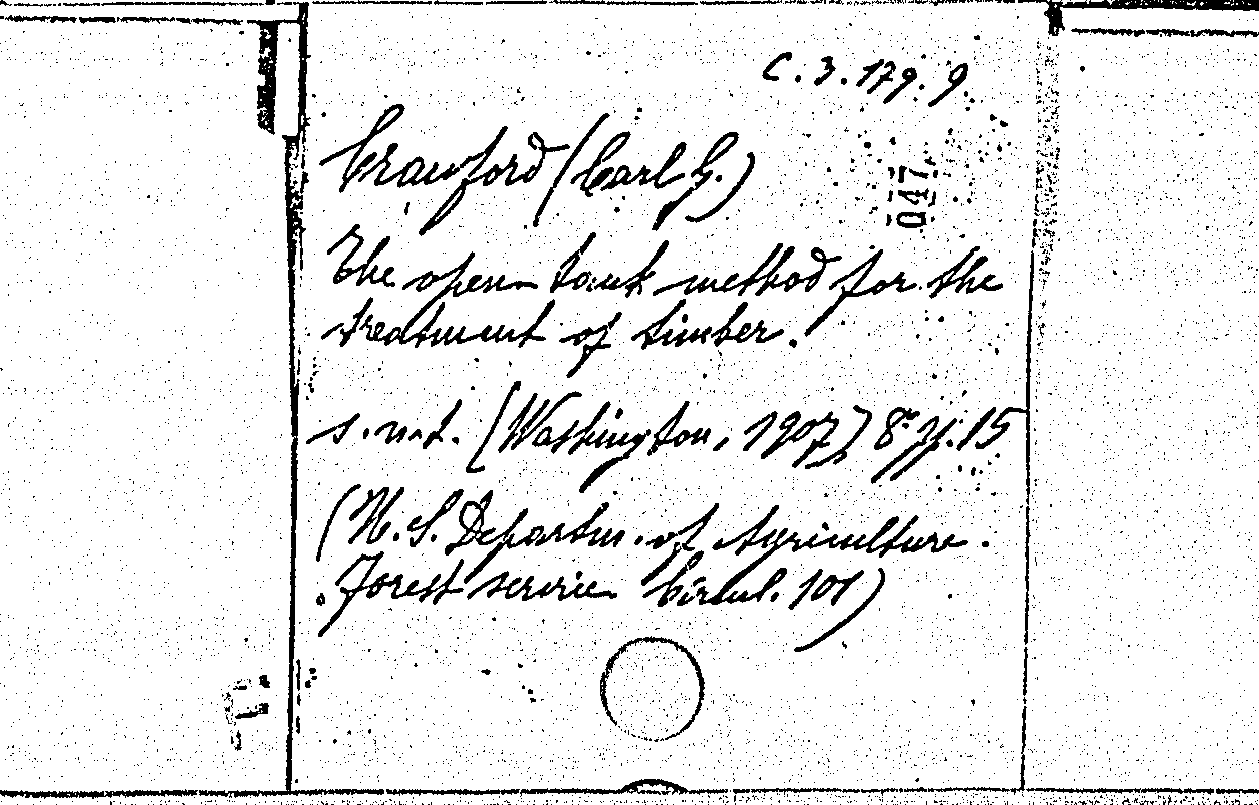 C. 3. 179. 9.
Crawford (Carl G.)
047
The open tank method for the
treatment of timber.
s. n. t. [Washington, 1907] 8° pp. 15
(U. S. Departm. of Agriculture.
Forest service Circul. 101)